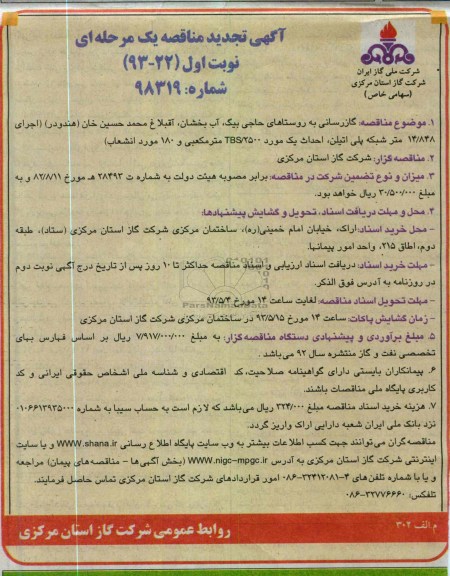 آگهی تجدید مناقصه یک مرحله ای
نوبت اول (۲۲-۹۳)
شماره: ۹۸۳۱۹
شرکت ملی گاز ایران
شرکت گاز استان مرکزی
(سهامی خاص)
۱. موضوع مناقصه: گازرسانی به روستاهای حاجی بیگ، آب بخشان، آقبلاغ محمد حسین خان (هندودر) (اجرای
۱۴/۸۴۸ متر شبکه پلی اتیلن، احداث یک مورد TBS/۲۵۰۰ مترمکعبی و ۱۸۰ مورد انشعاب)
۲. مناقصه گزار: شرکت گاز استان مرکزی
۳. میزان و نوع تضمین شرکت در مناقصه: برابر مصوبه هیئت دولت به شماره ت ۲۸۴۹۳ هـ مورخ ۸۲/۸/۱۱ و به
مبلغ ۳۰/۵۰۰/۰۰۰ ریال خواهد بود.
۴. محل و مهلت دریافت اسناد، تحویل و گشایش پیشنهادها:
- محل خرید اسناد: اراک، خیابان امام خمینی(ره)، ساختمان مرکزی شرکت گاز استان مرکزی (ستاد)، طبقه
دوم، اطاق ۲۱۵، واحد امور پیمانها.
- مهلت خرید اسناد: دریافت اسناد ارزیابی و اسناد مناقصه حداکثر تا ۱۰ روز پس از تاریخ درج آگهی نوبت دوم
در روزنامه به آدرس فوق الذکر.
- مهلت تحویل اسناد مناقصه: لغایت ساعت ۱۴ مورخ ۹۳/۵/۴
- زمان گشایش پاکات: ساعت ۱۴ مورخ ۹۳/۵/۱۵ در ساختمان مرکزی شرکت گاز استان مرکزی
۵. مبلغ برآوردی و پیشنهادی دستگاه مناقصه گزار: به مبلغ ۷/۹۱۷/۰۰۰/۰۰۰ ریال بر اساس فهارس بهای
تخصصی نفت و گاز منتشره سال ۹۲ می باشد.
۶. پیمانکاران بایستی دارای گواهینامه صلاحیت، کد اقتصادی و شناسه ملی اشخاص حقوقی ایرانی و کد
کاربری پایگاه ملی مناقصات باشند.
۷. هزینه خرید اسناد مناقصه مبلغ ۳۲۴/۰۰۰ ریال می باشد که لازم است به حساب سیبا به شماره ۰۱۰۶۶۱۳۹۳۵۰۰۰
نزد بانک ملی ایران شعبه دارایی اراک واریز گردد.
مناقصه گران می توانند جهت کسب اطلاعات بیشتر به وب سایت پایگاه اطلاع رسانی WWW.shana.ir و یا سایت
اینترنتی شرکت گاز استان مرکزی به آدرس WWW.nigc-mpgc.ir (بخش آگهی ها - مناقصه های پیمان) مراجعه
و یا با شماره تلفن های ۴-۳۲۴۱۲۰۸۱-۰۸۶ امور قراردادهای شرکت گاز استان مرکزی تماس حاصل فرمایند.
تلفکس: ۳۲۷۷۶۶۶۰-۰۸۶
م الف ۳۰۲
روابط عمومی شرکت گاز استان مرکزی